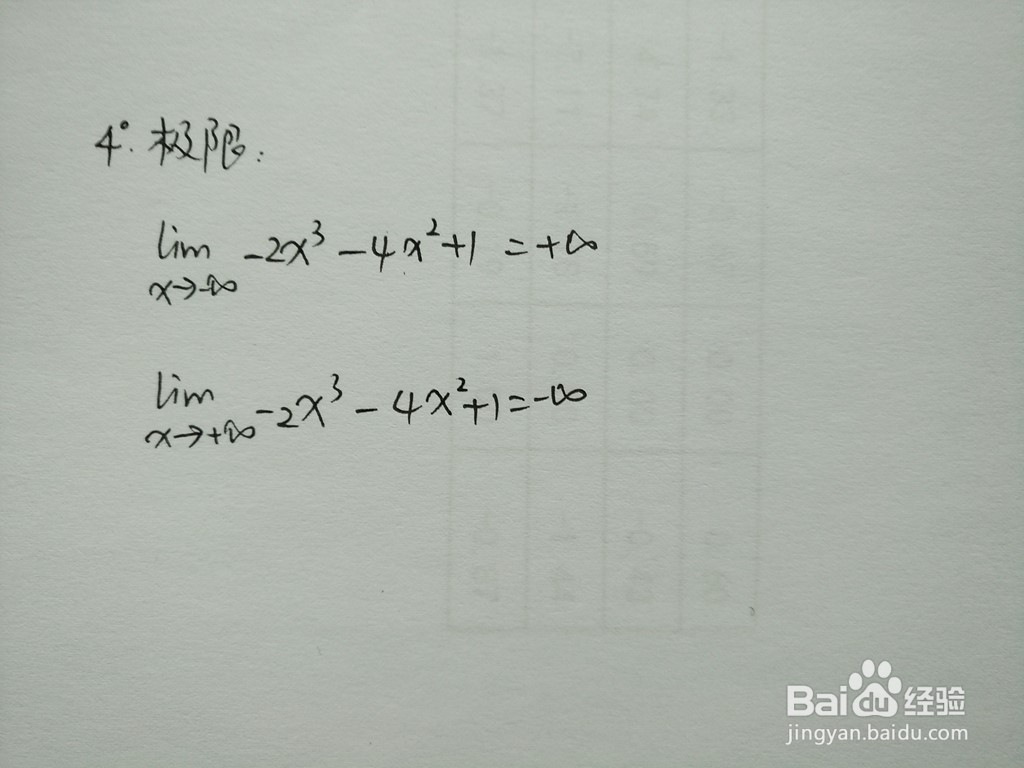 4°. 极限：
lim -2x³ - 4x² + 1 = +∞
x→-∞
lim -2x³ - 4x² + 1 = -∞
x→+∞
Bai du 经验
jingyan.baidu.com